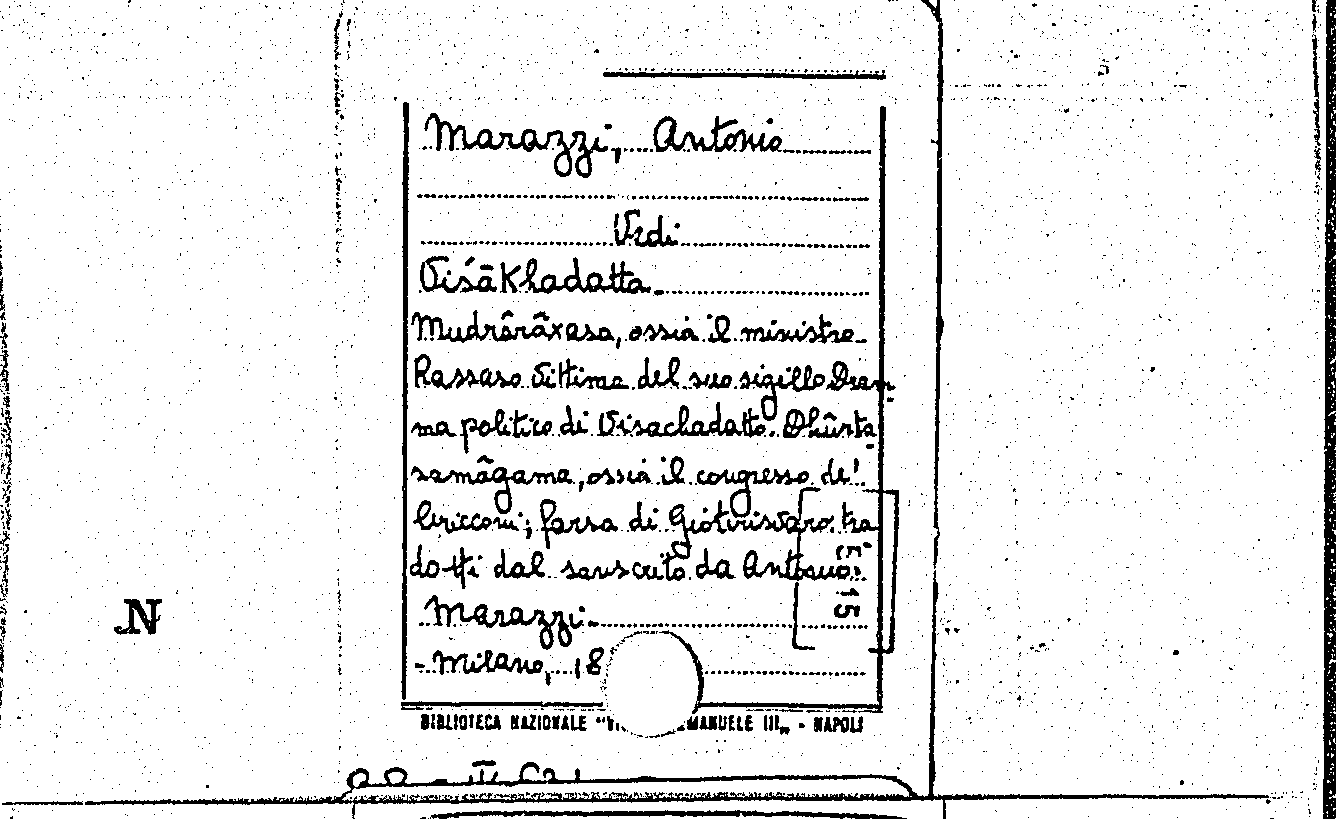 Marazzi, Antonio
Vedi
Viśākhadatta.
Mudrârâxasa, ossia il ministro
Rassaso vittima del suo sigillo Dram-
ma politico di Visachadatto. Dhûrta-
samâgama, ossia il congresso de'
bricconi; farsa di Giotirisvaro. tra-
dotti dal sanscrito da Antonio
Marazzi.
- Milano, 18
BIBLIOTECA NAZIONALE "VI EMANUELE III„ - NAPOLI
N
15